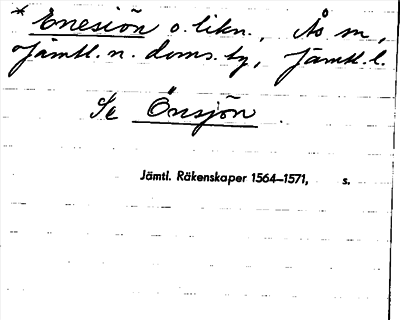 * Enesiön o. likn., Ås sn,
Jämtl. n. doms. by, Jämtl. l.
Se Önsjön.
Jämtl. Räkenskaper 1564–1571, s.